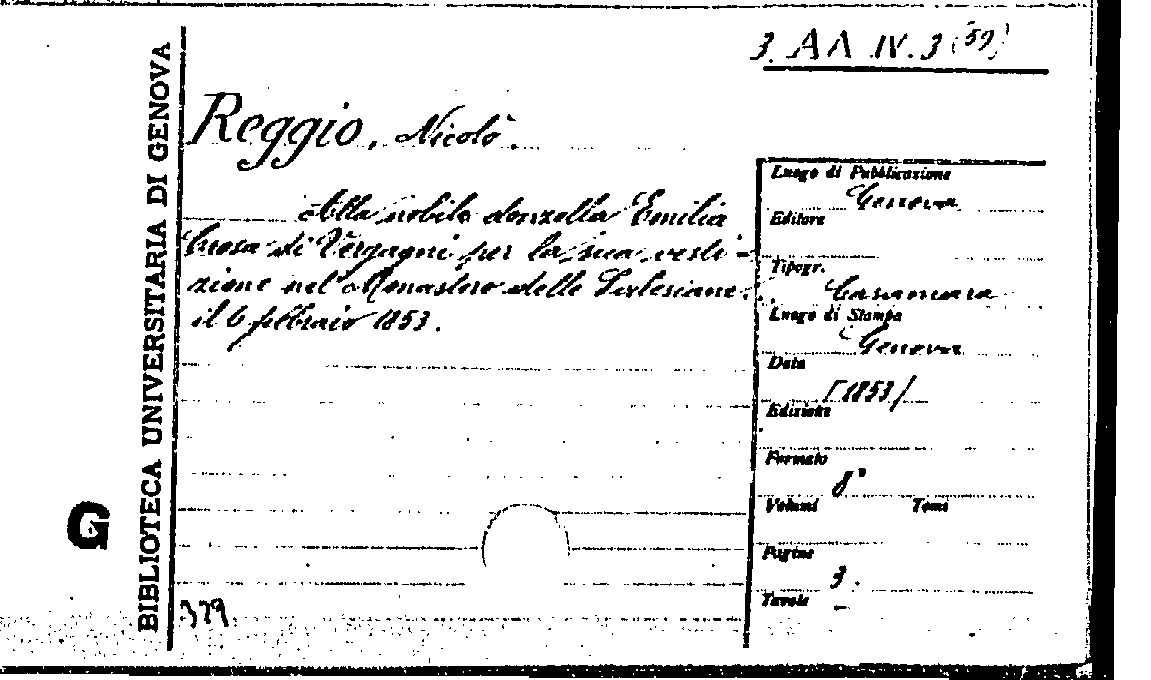 3. AA IV. 3 (59)
BIBLIOTECA UNIVERSITARIA DI GENOVA
G
Reggio, Nicolò.
Alla nobile donzella Emilia
Crosa di Vergagni per la sua vesti-
zione nel Monastero delle Salesiane.
il 6 febbraio 1853.
379.
Luogo di Pubblicazione
Genova
Editore
Tipogr.
Casamara
Luogo di Stampa
Genova
Data
[1853]
Edizione
Formato
8°
Volumi Tomi
Pagine
3.
Tavole
–